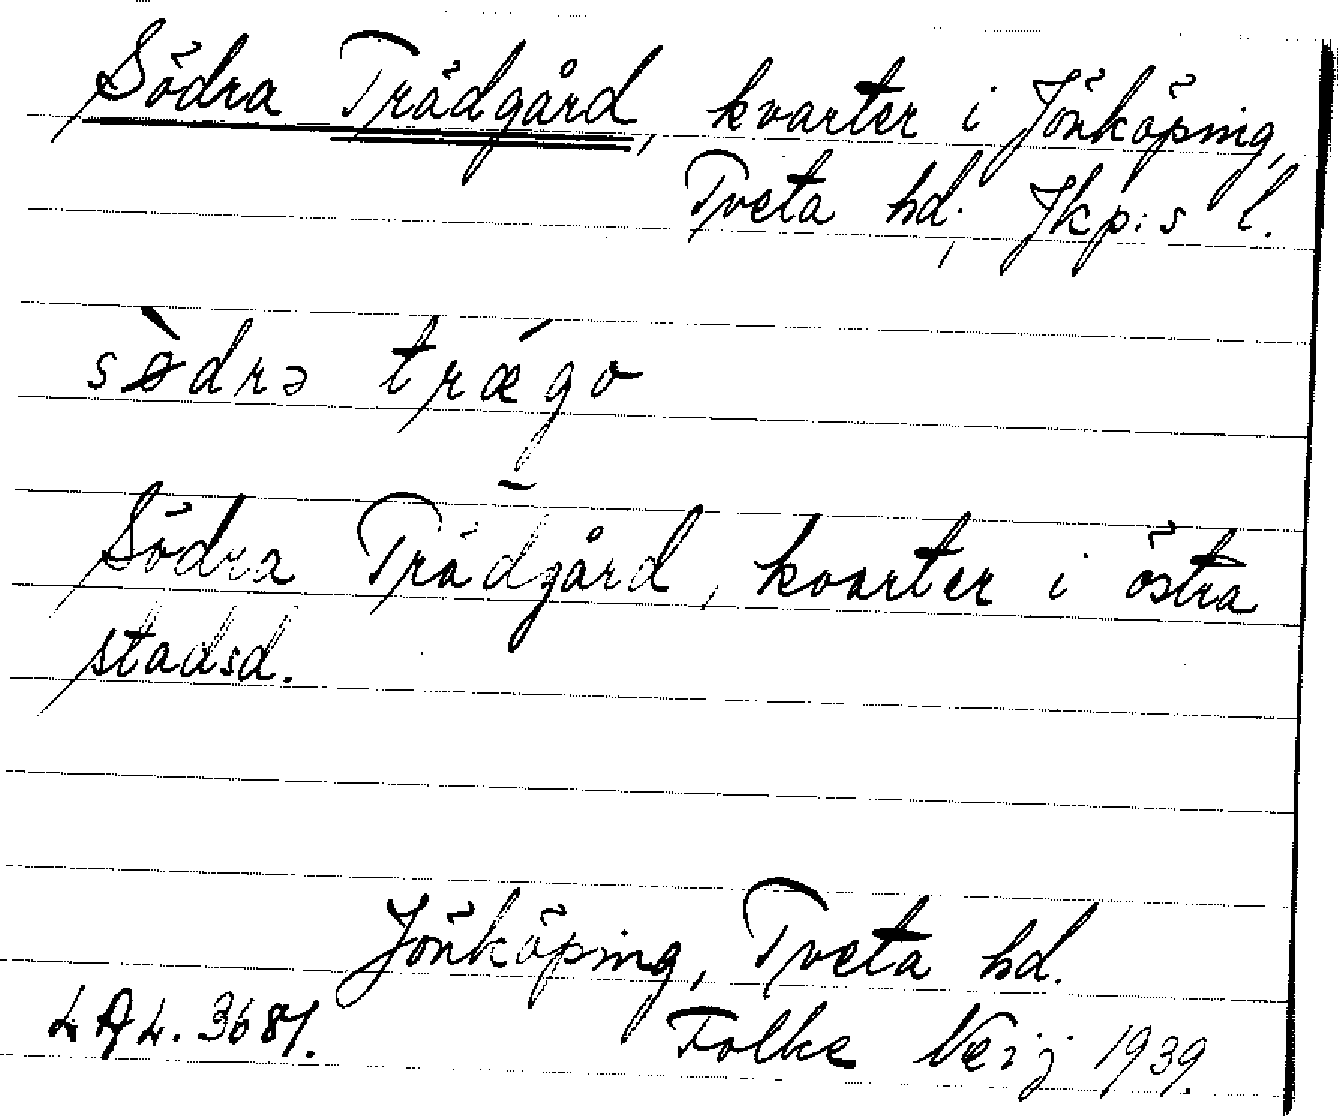 Södra Trädgård, kvarter i Jönköping,
Tveta hd, Jkp:s l.
sø̀drə trǽgo
Södra Trädgård, kvarter i östra
stadsd.
Jönköping, Tveta hd.
LAL. 3687. Folke Neij 1939.